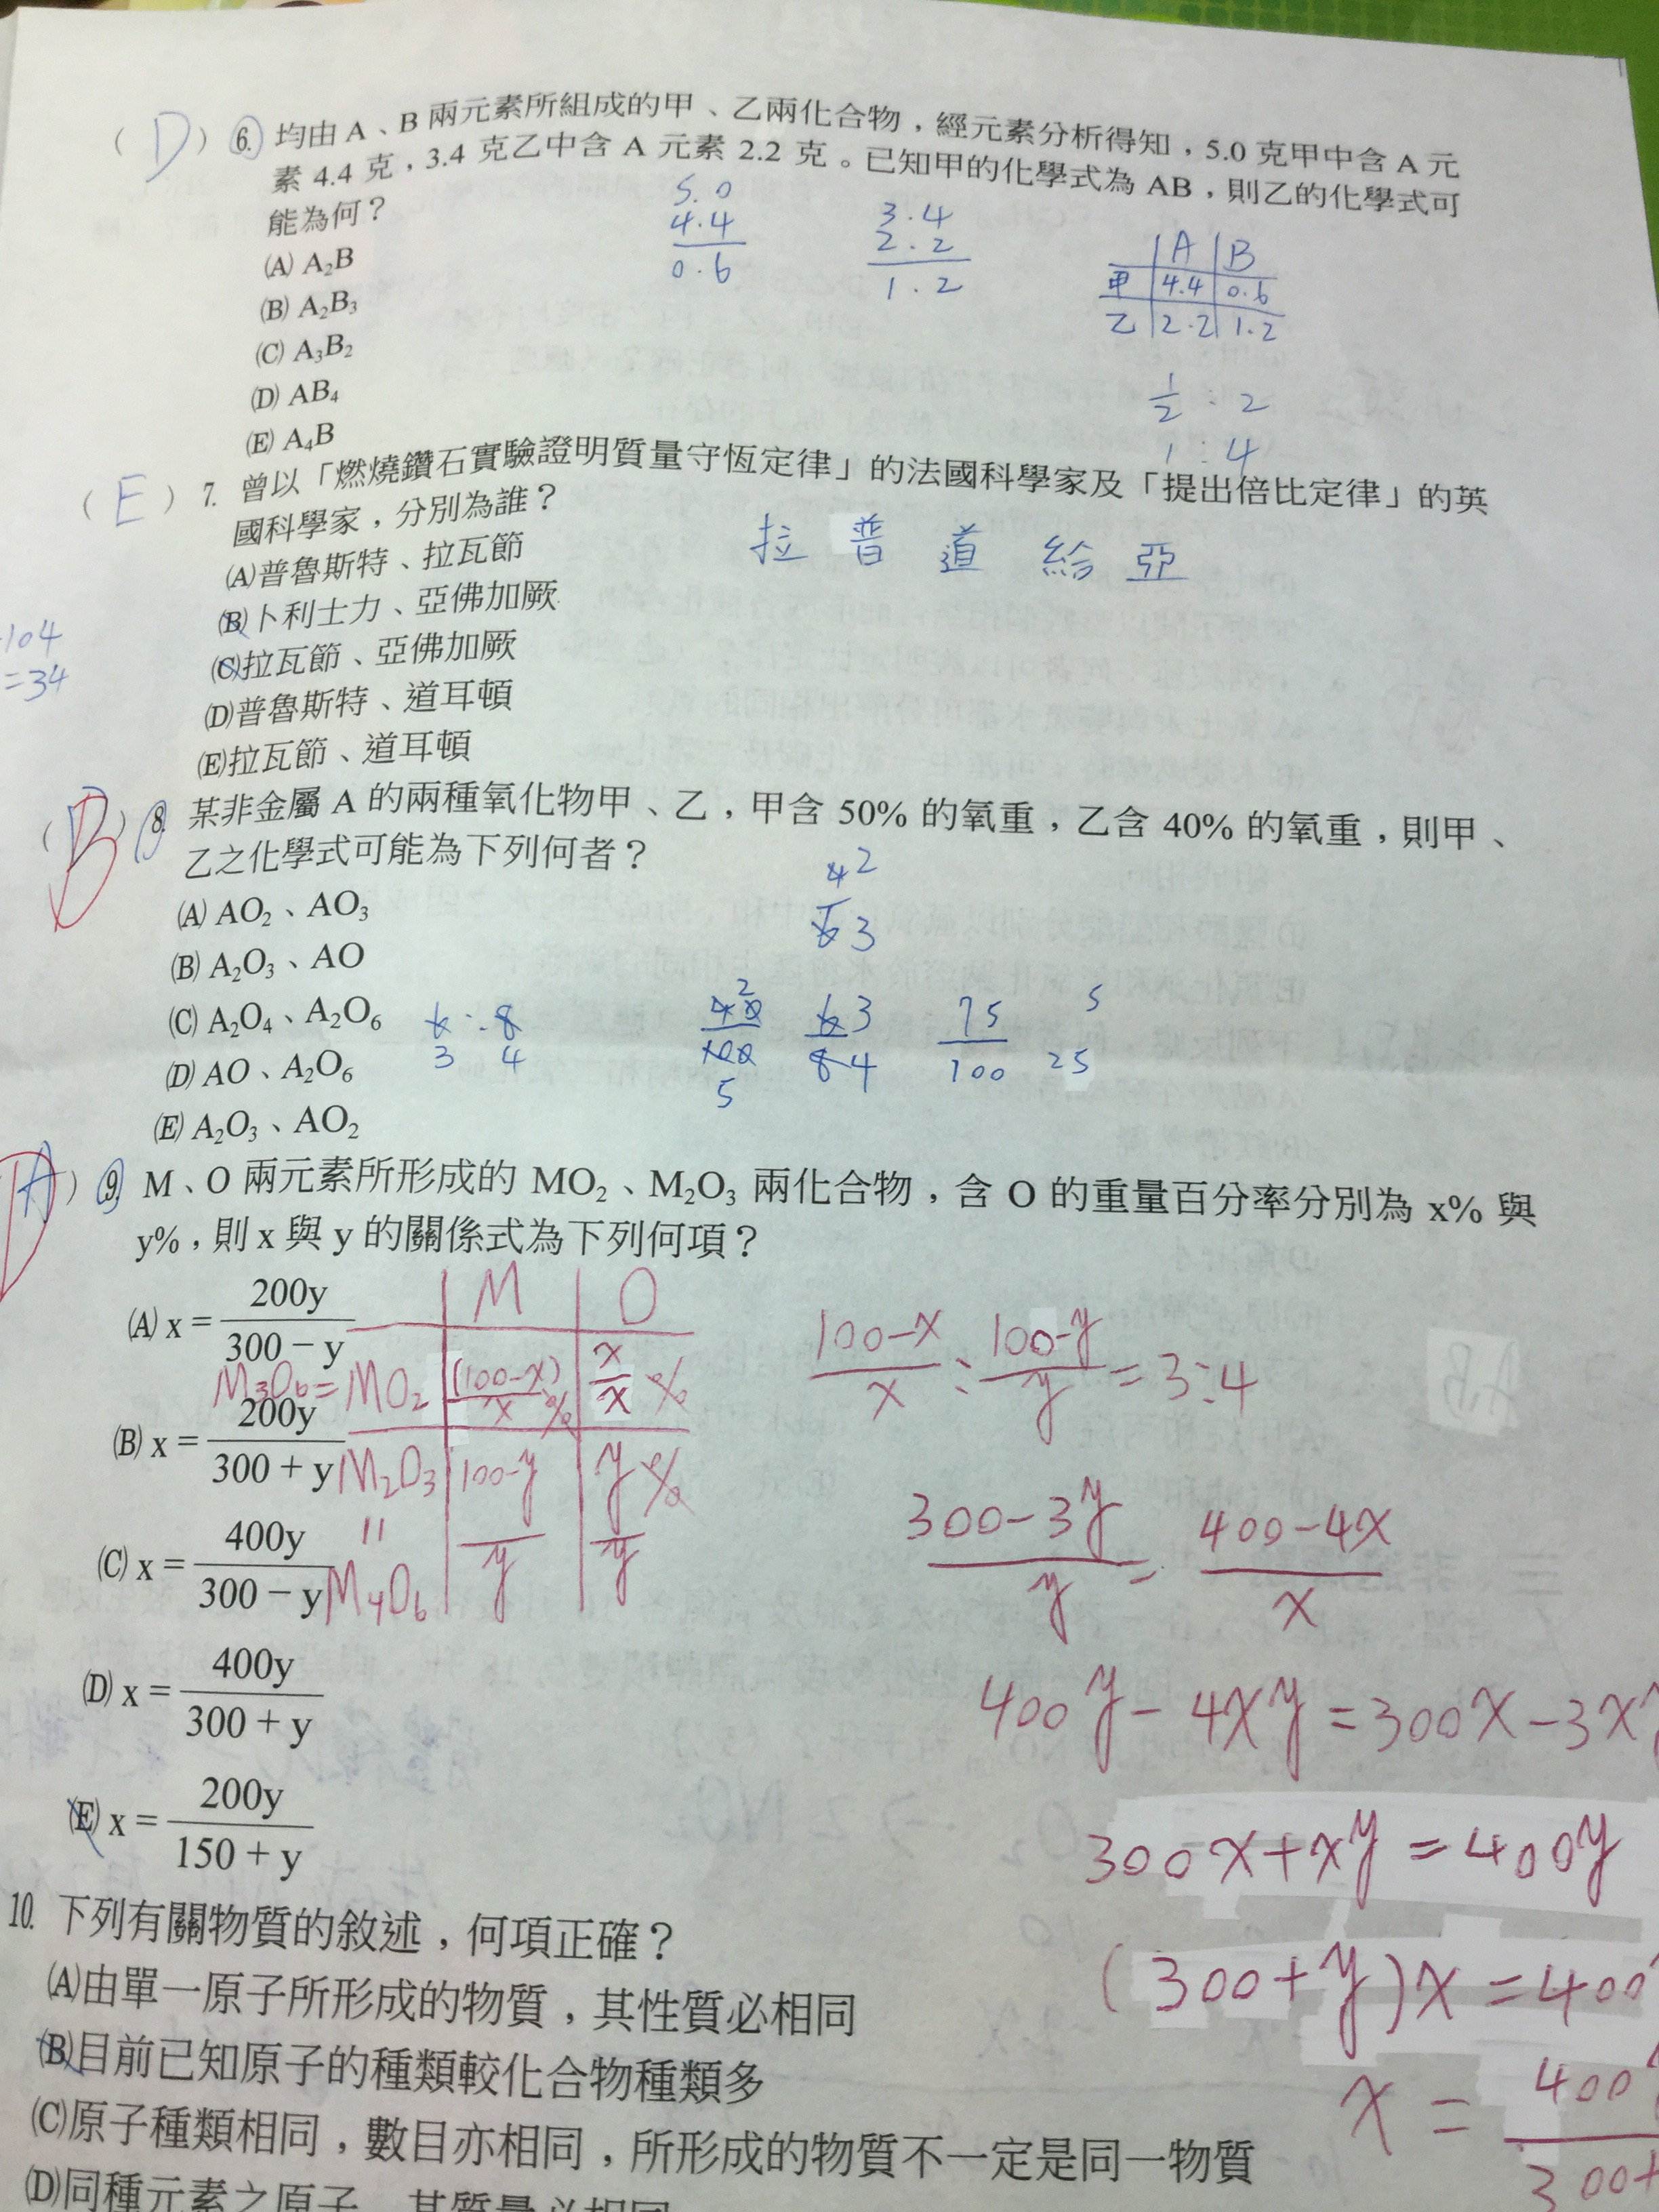 ( D ) 6. 均由 A、B 兩元素所組成的甲、乙兩化合物，經元素分析得知，5.0 克甲中含 A 元
素 4.4 克，3.4 克乙中含 A 元素 2.2 克。已知甲的化學式為 AB，則乙的化學式可
能為何？
5.0
4.4
0.6
3.4
2.2
1.2
A B
甲 4.4 0.6
乙 2.2 1.2
1/2 : 2
1 : 4
(A) A₂B
(B) A₂B₃
(C) A₃B₂
(D) AB₄
(E) A₄B
( E ) 7. 曾以「燃燒鑽石實驗證明質量守恆定律」的法國科學家及「提出倍比定律」的英
國科學家，分別為誰？
拉 普 道 給 亞
(A)普魯斯特、拉瓦節
(B)卜利士力、亞佛加厥
(C)拉瓦節、亞佛加厥
(D)普魯斯特、道耳頓
(E)拉瓦節、道耳頓
104
=34
( B ) 8. 某非金屬 A 的兩種氧化物甲、乙，甲含 50% 的氧重，乙含 40% 的氧重，則甲、
乙之化學式可能為下列何者？
(A) AO₂、AO₃
(B) A₂O₃、AO
(C) A₂O₄、A₂O₆
(D) AO、A₂O₆
(E) A₂O₃、AO₂
4 2
6 3
6 : 8
3 4
40 2
100
5
6 3
8 4
75
100
5
25
D A ) 9. M、O 兩元素所形成的 MO₂、M₂O₃ 兩化合物，含 O 的重量百分率分別為 x% 與
y%，則 x 與 y 的關係式為下列何項？
(A) x = 200y / 300 − y
(B) x = 200y / 300 + y
(C) x = 400y / 300 − y
(D) x = 400y / 300 + y
(E) x = 200y / 150 + y
M O
M₃O₆=MO₂ (100-x)/x % x/x %
M₂O₃ 100-y / y y % / y
"
M₄O₆
100-x / x : 100-y / y = 3:4
300-3y / y = 400-4x / x
400y - 4xy = 300x - 3x
300x+xy = 400y
(300+y)x = 400
x = 400 / 300+
10. 下列有關物質的敘述，何項正確？
(A)由單一原子所形成的物質，其性質必相同
(B)目前已知原子的種類較化合物種類多
(C)原子種類相同，數目亦相同，所形成的物質不一定是同一物質
(D)同種元素之原子，其質量必相同